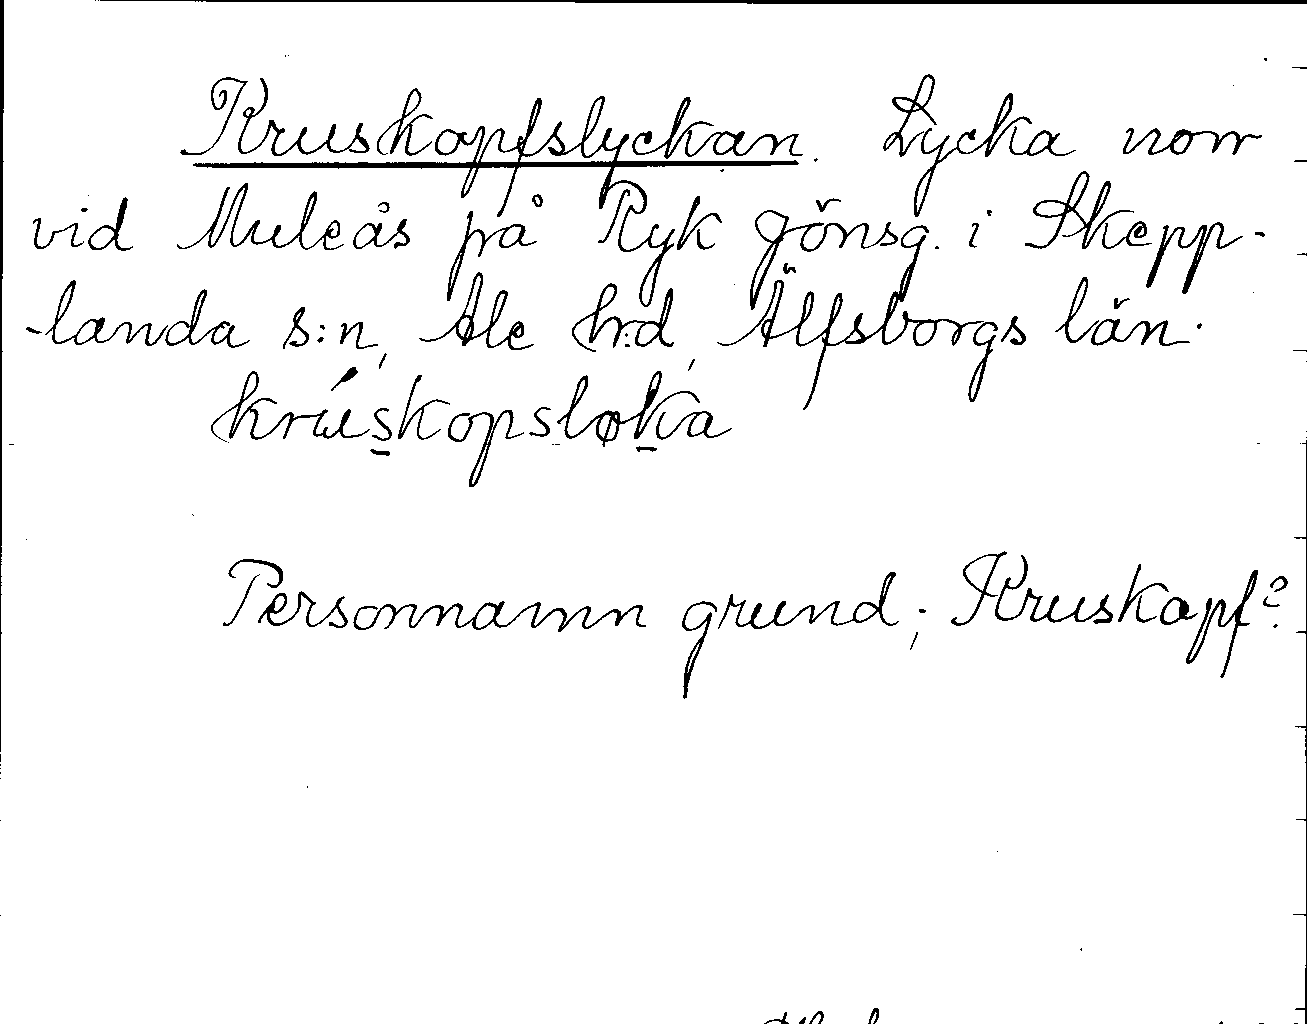 Kruskopfslyckan. Lycka norr
vid Muleås på Ryk Jönsg. i Skepp-
-landa s:n, Ale h:d, Älfsborgs län.
krúskopsløka
Personnamn grund; Kruskopf?